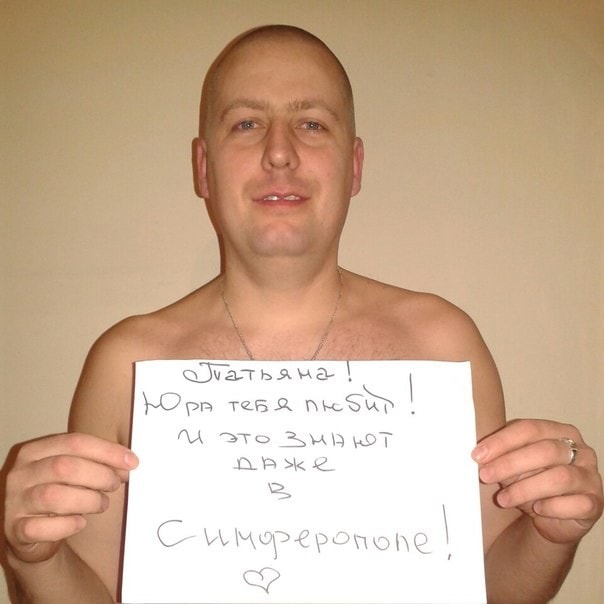 Татьяна!
Юра тебя любит!
и это знают
даже
в
Симферополе!